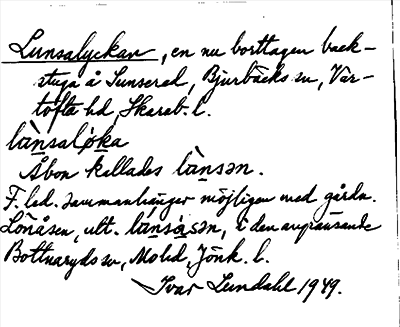 Lunsalyckan, en nu borttagen back-
stuga å Sunsered, Bjurbäcks sn, Var-
tofta hd, Skarab. l.
lȧnsaløka
Åbon kallades lȧnsən.
F. led. sammanhänger möjligen med gårdn.
Lönåsen, utt. lȧnsȧsən, i den angränsande
Bottnaryds sn, Mo hd, Jönk. l.
Ivar Lundahl 1949.